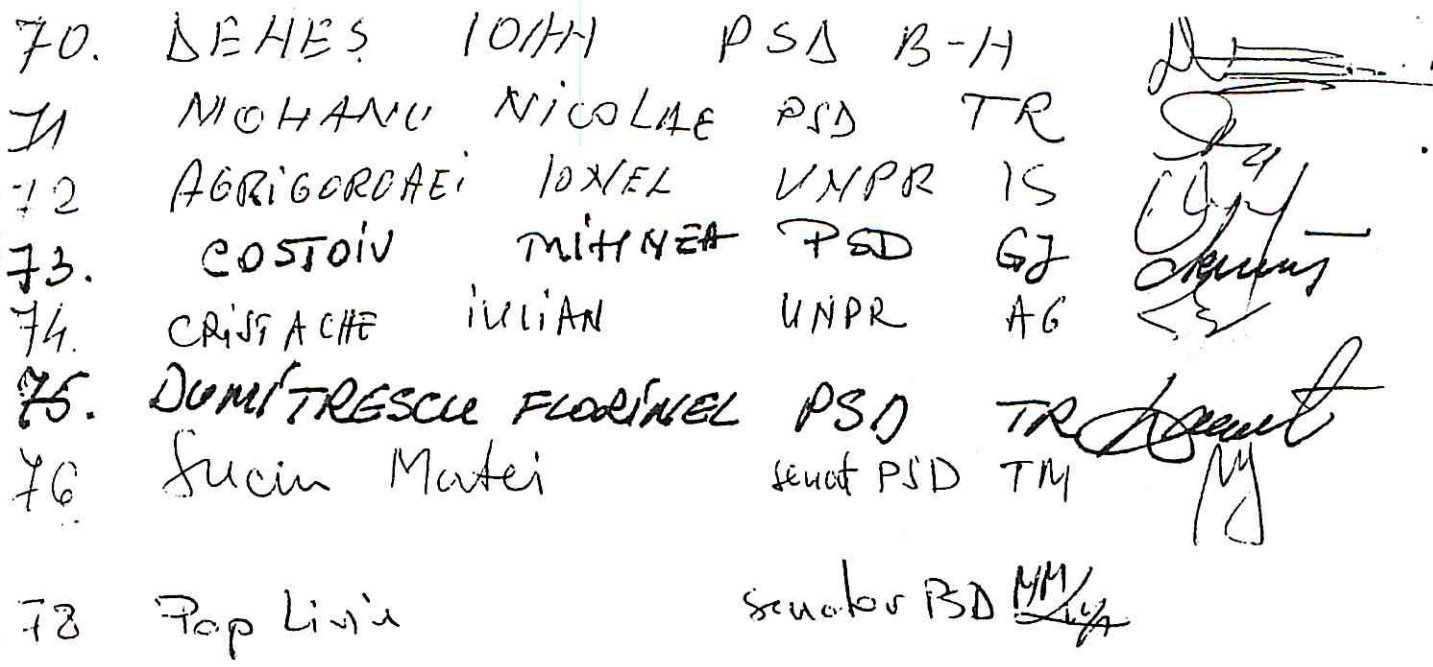 70. DENEȘ IOAN PSD B-N
71 MOHANU NICOLAE PSD TR
72 AGRIGOROAEi IONEL UNPR IS
73. COSTOiU MiHNEA PSD GJ
74. CRiSTACHE iULiAN UNPR AG
75. DUMiTRESCU FLORiNEL PSD TR
76 Suciu Matei senat PSD TM
78 Pop Liviu senator PSD MM